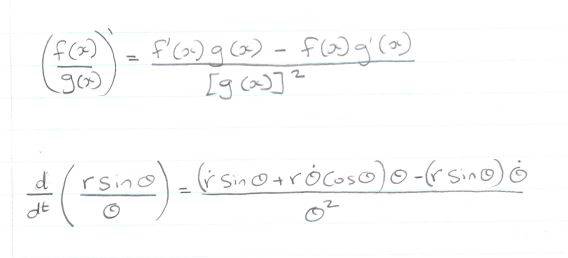 (f(x)/g(x))' = f'(x)g(x) - f(x)g'(x) / [g(x)]²
d/dt (r sinθ / θ) = (ṙ sinθ + r θ̇ cosθ)θ - (r sinθ) θ̇ / θ²